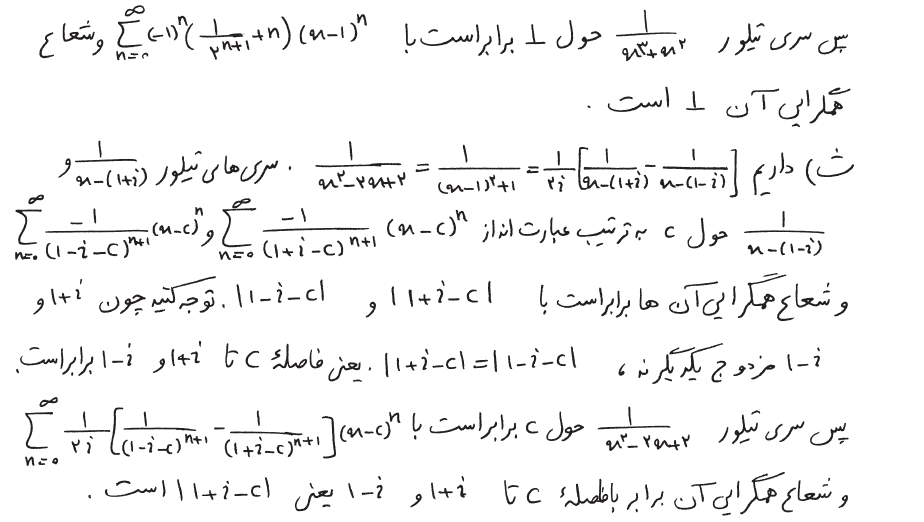 پس سری تیلور $\frac{1}{x^3+x^2}$ حول 1 برابر است با $\sum_{n=0}^{\infty} (-1)^n \left(\frac{1}{2^{n+1}}+n\right)(x-1)^n$ و شعاع
همگرایی آن 1 است.
ث) داریم $\frac{1}{x^2-2x+2} = \frac{1}{(x-1)^2+1} = \frac{1}{2i}\left[\frac{1}{x-(1+i)} - \frac{1}{x-(1-i)}\right]$. سری های تیلور $\frac{1}{x-(1+i)}$ و
$\frac{1}{x-(1-i)}$ حول c به ترتیب عبارت اند از $\sum_{n=0}^{\infty} \frac{-1}{(1+i-c)^{n+1}}(x-c)^n$ و $\sum_{n=0}^{\infty} \frac{-1}{(1-i-c)^{n+1}}(x-c)^n$
و شعاع همگرایی آن ها برابر است با $|1+i-c|$ و $|1-i-c|$. توجه کنید چون $1+i$ و
$1-i$ مزدوج یکدیگرند، $|1+i-c|=|1-i-c|$. یعنی فاصلهٔ c تا $1+i$ و $1-i$ برابر است.
پس سری تیلور $\frac{1}{x^2-2x+2}$ حول c برابر است با $\sum_{n=0}^{\infty} \frac{1}{2i}\left[\frac{1}{(1-i-c)^{n+1}} - \frac{1}{(1+i-c)^{n+1}}\right](x-c)^n$
و شعاع همگرایی آن برابر با فاصلهٔ c تا $1+i$ و $1-i$ یعنی $|1+i-c|$ است.